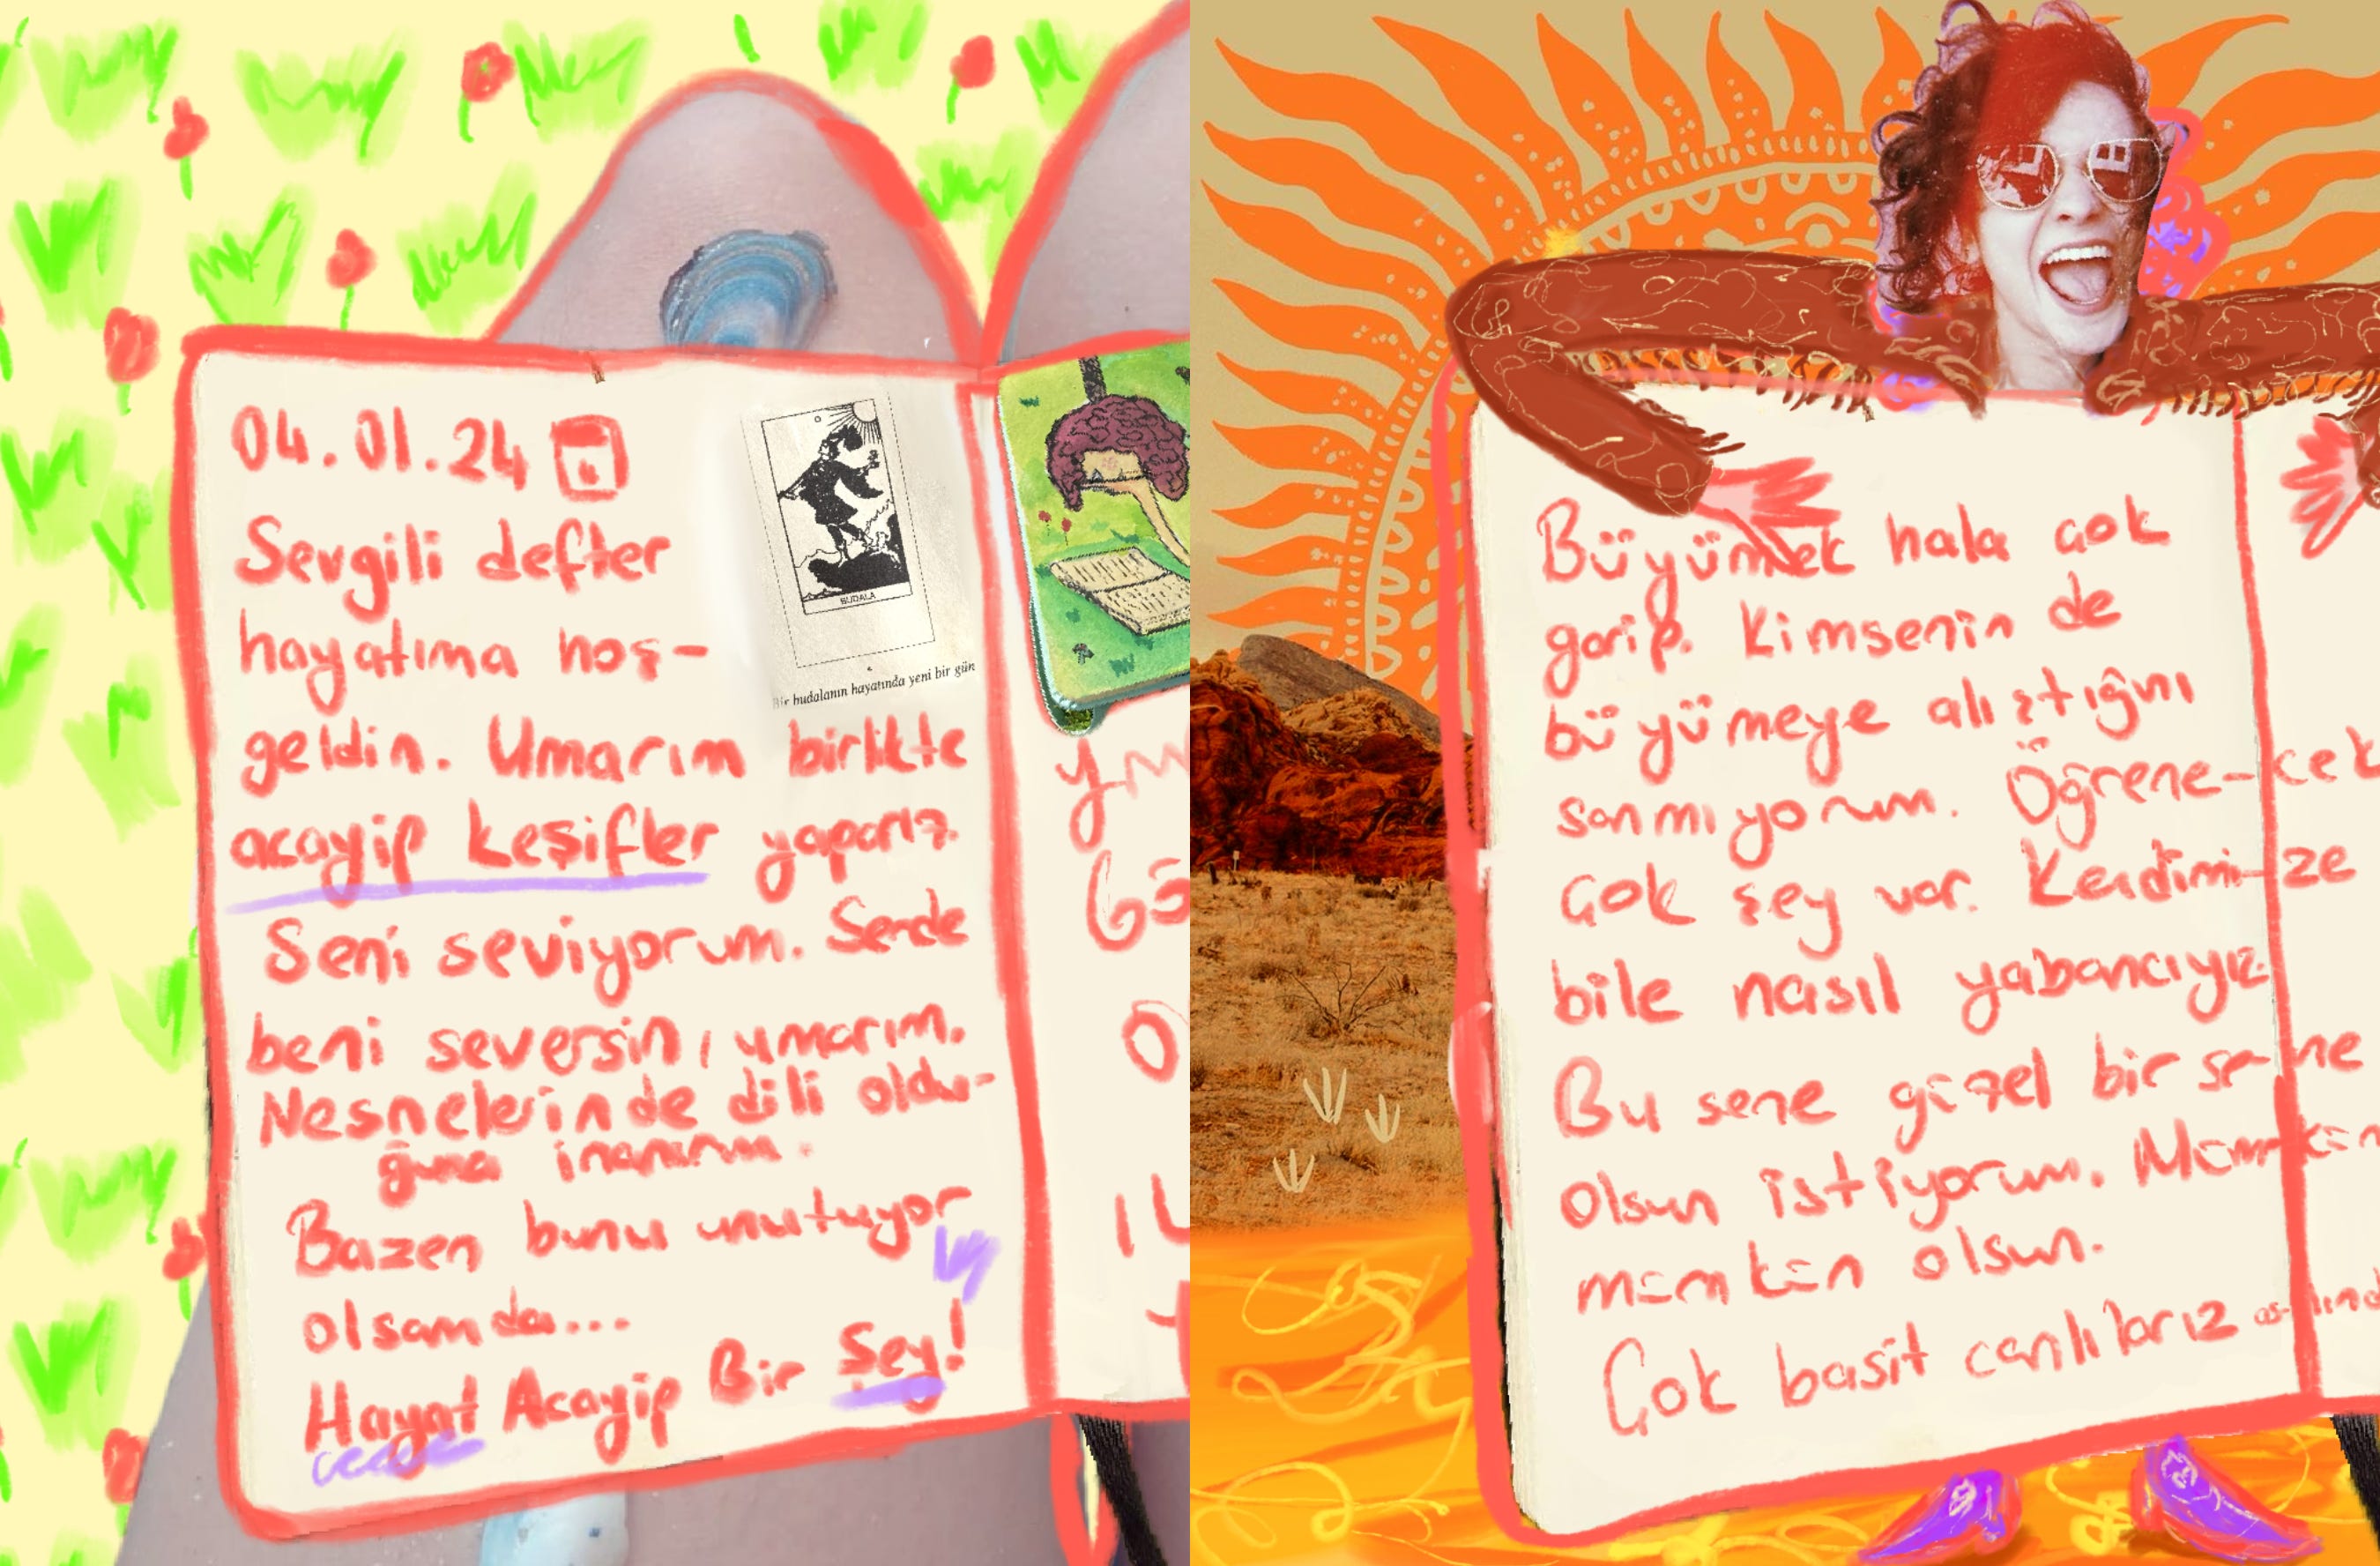 04.01.24
Sevgili defter
hayatıma hoş-
geldin. Umarım birlikte
acayip keşifler yaparız.
Seni seviyorum. Sende
beni seversin, umarım.
Nesnelerinde dili oldu-
ğuna inanırım.
Bazen bunu unutuyor
olsamda...
Hayat Acayip Bir Şey!
BUDALA
Bir budalanın hayatında yeni bir gün
Büyümek hala çok
garip. Kimsenin de
büyümeye alıştığını
sanmıyorum. Öğrene-cek
çok şey var. Kendimi-ze
bile nasıl yabancıyız.
Bu sene güzel bir se-ne
olsun istiyorum. Mümkün
mümkün olsun.
Çok basit canlılarız